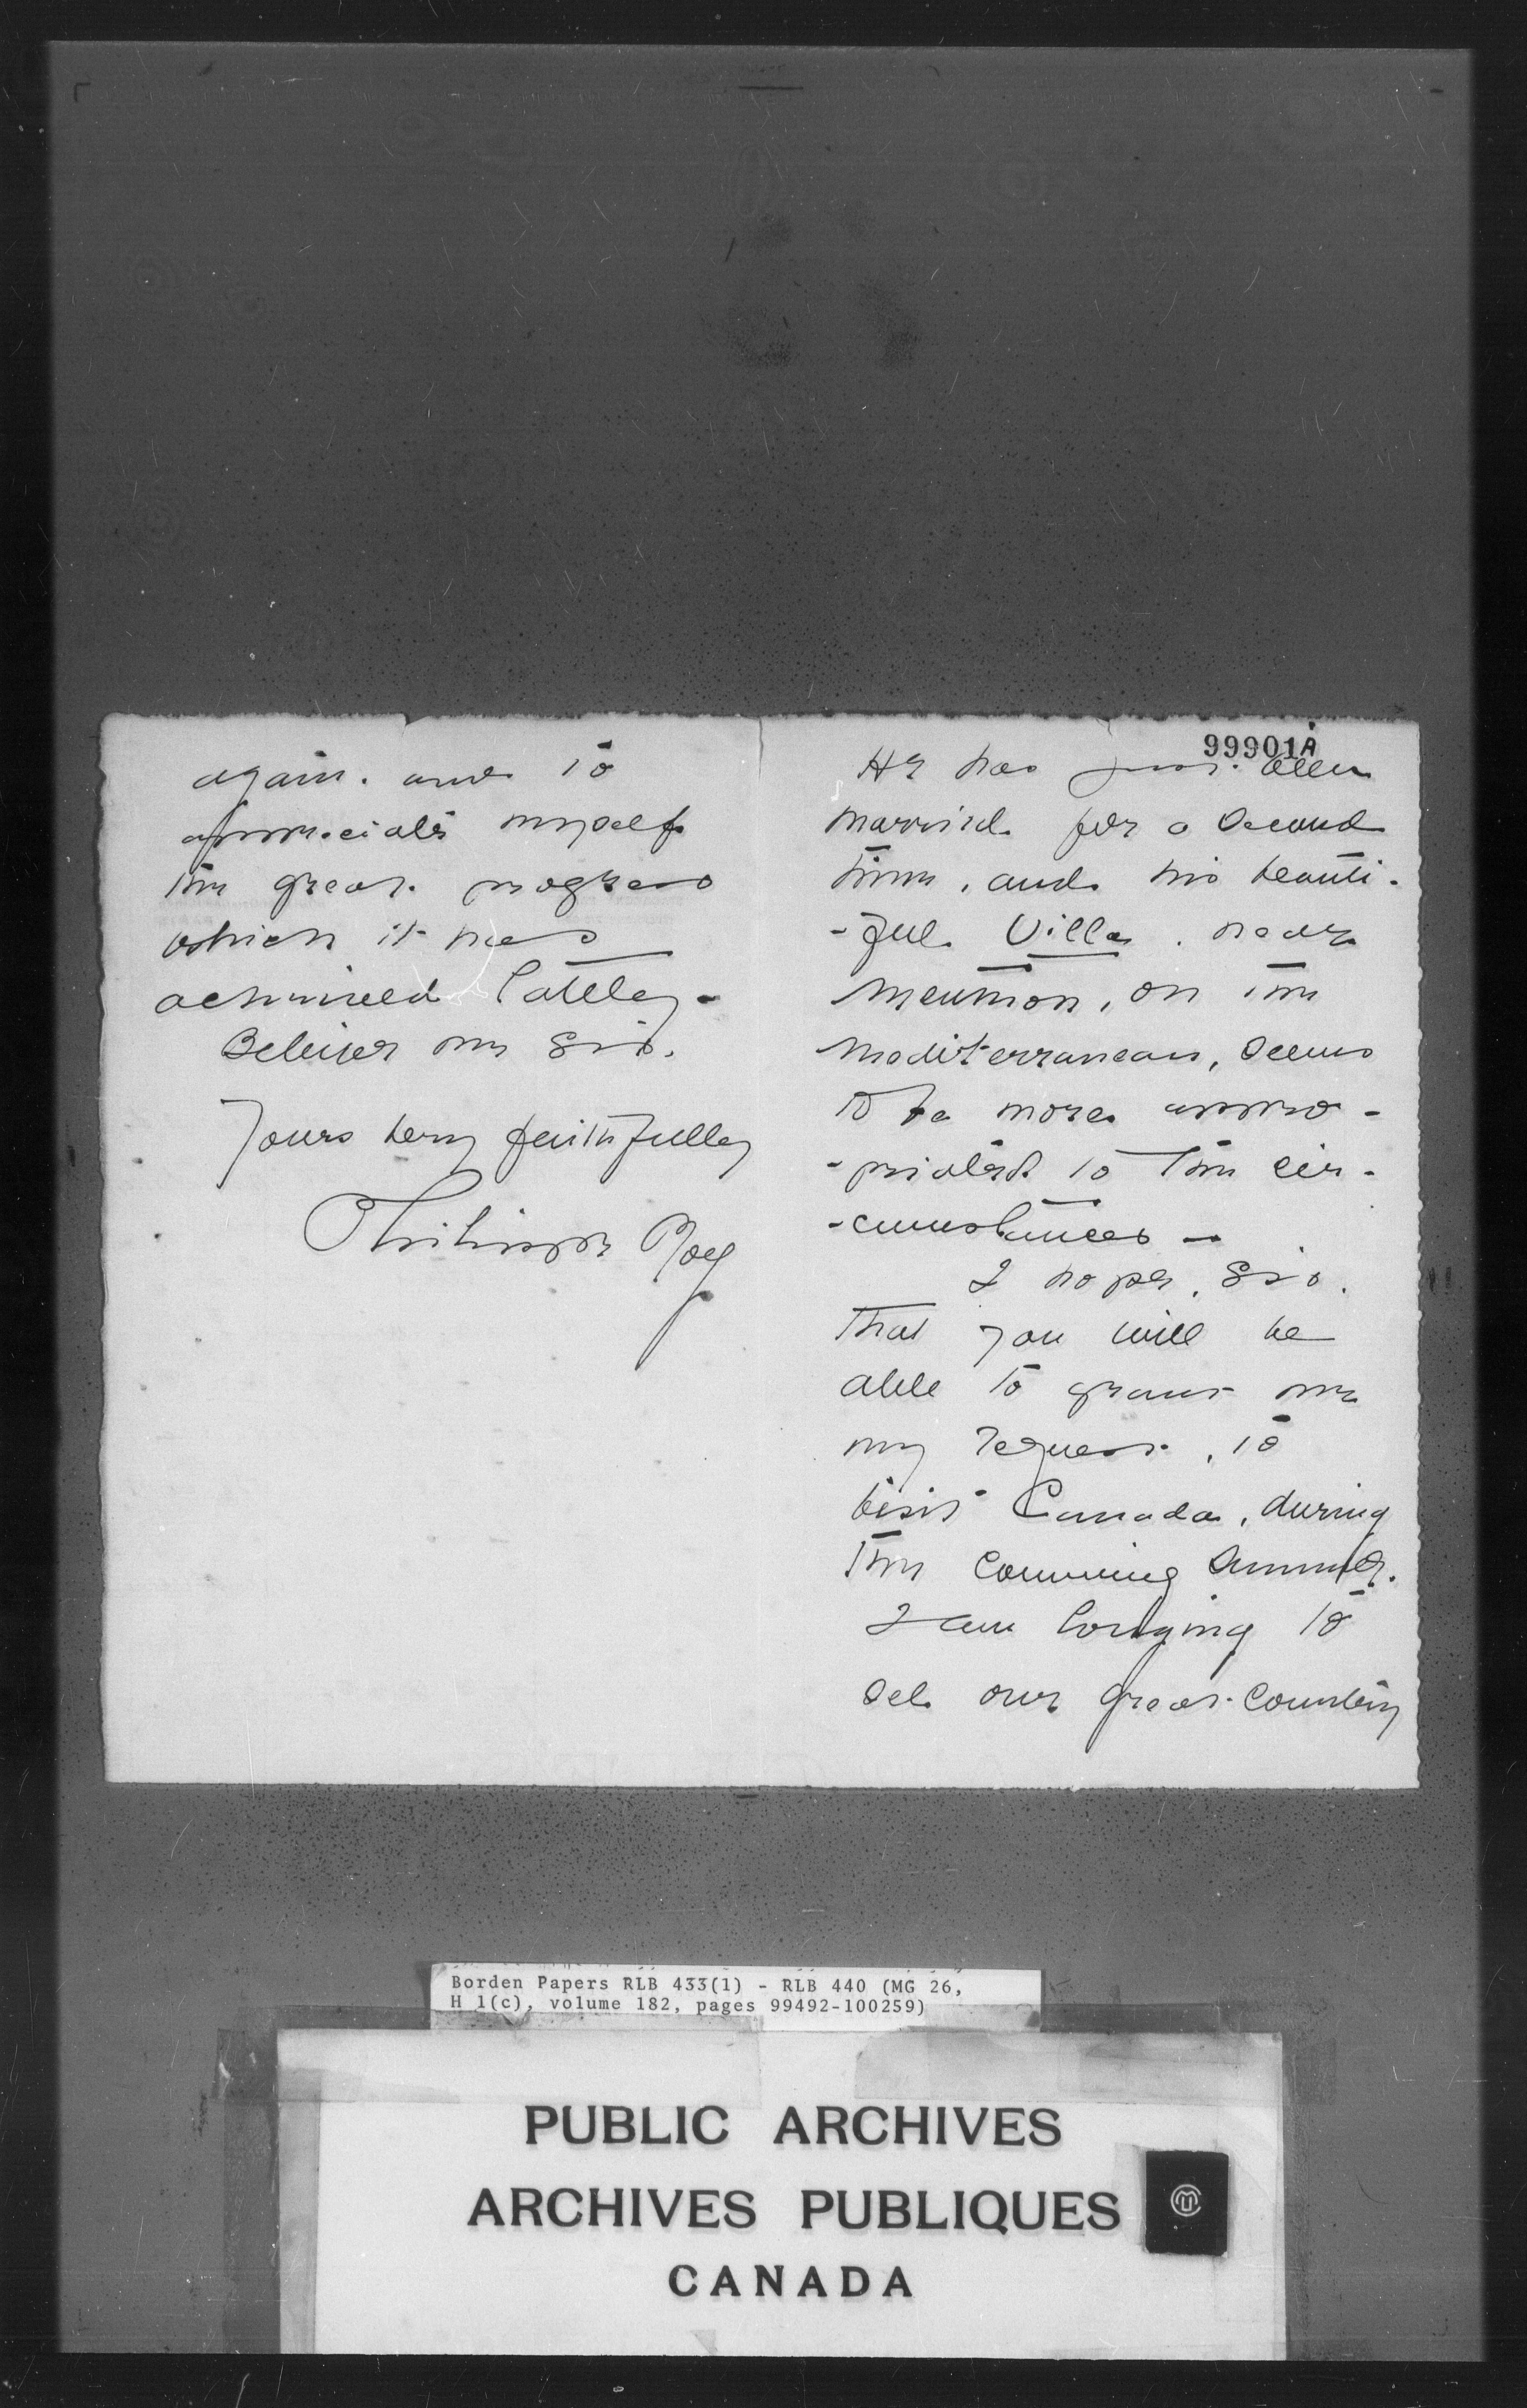 99901A
He has just been
married for a second
time, and his beauti-
-ful Villa, near
Menton, on the
Mediterranean, seems
to be more appro-
-priated to the cir-
-cumstances —
I hope, Sir,
that you will be
able to grant me
my request, to
visit Canada, during
the comming summer.
I am longing to
see our great country
again. and to
appreciate myself
the great progress
which it has
achieved lattely -
Beleiver me Sir,
Yours very faithfully
Philippe Roy
Borden Papers RLB 433(1) - RLB 440 (MG 26,
H 1(c), volume 182, pages 99492-100259)
PUBLIC ARCHIVES
ARCHIVES PUBLIQUES
CANADA